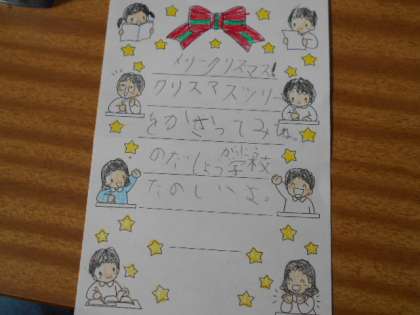 メリークリスマス!
クリスマスツリー
をかざってみな。
のだしょう学校
たのしいよ。